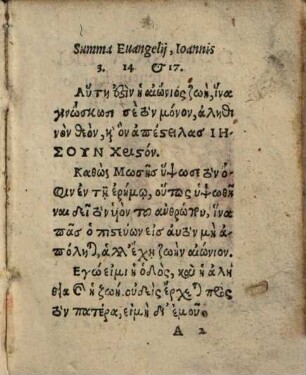 Summa Euangelij, Ioannis
3. 14 & 17.
Αὕτη ὀξὶν ἡ αἰώνιος ζωὴ, ἵνα
γινώσκωσι σὲ τὸν μόνον, ἀληθι
νὸν θεὸν, κ' ὃν ἀπέστειλας ΙΗ-
ΣΟΥΝ Χριστόν.
Καθὼς Μωσῆς ὕψωσε τὸν ὄ-
φιν ἐν τῇ ἐρήμῳ, οὕτως ὑψωθῆ
ναι δεῖ τὸν υἱὸν τοῦ ἀνθρώπου, ἵνα
πᾶς ὁ πιστεύων εἰς αὐτὸν μὴ ἀ-
πόληται, ἀλλ' ἔχῃ ζωὴν αἰώνιον.
Εγώ εἰμι ἡ ὁδὸς, καὶ ἡ ἀλή
θεια & ἡ ζωή. οὐδεὶς ἔρχεται πρὸς
τὸν πατέρα, εἰ μὴ δι' ἐμοῦ.
A 2